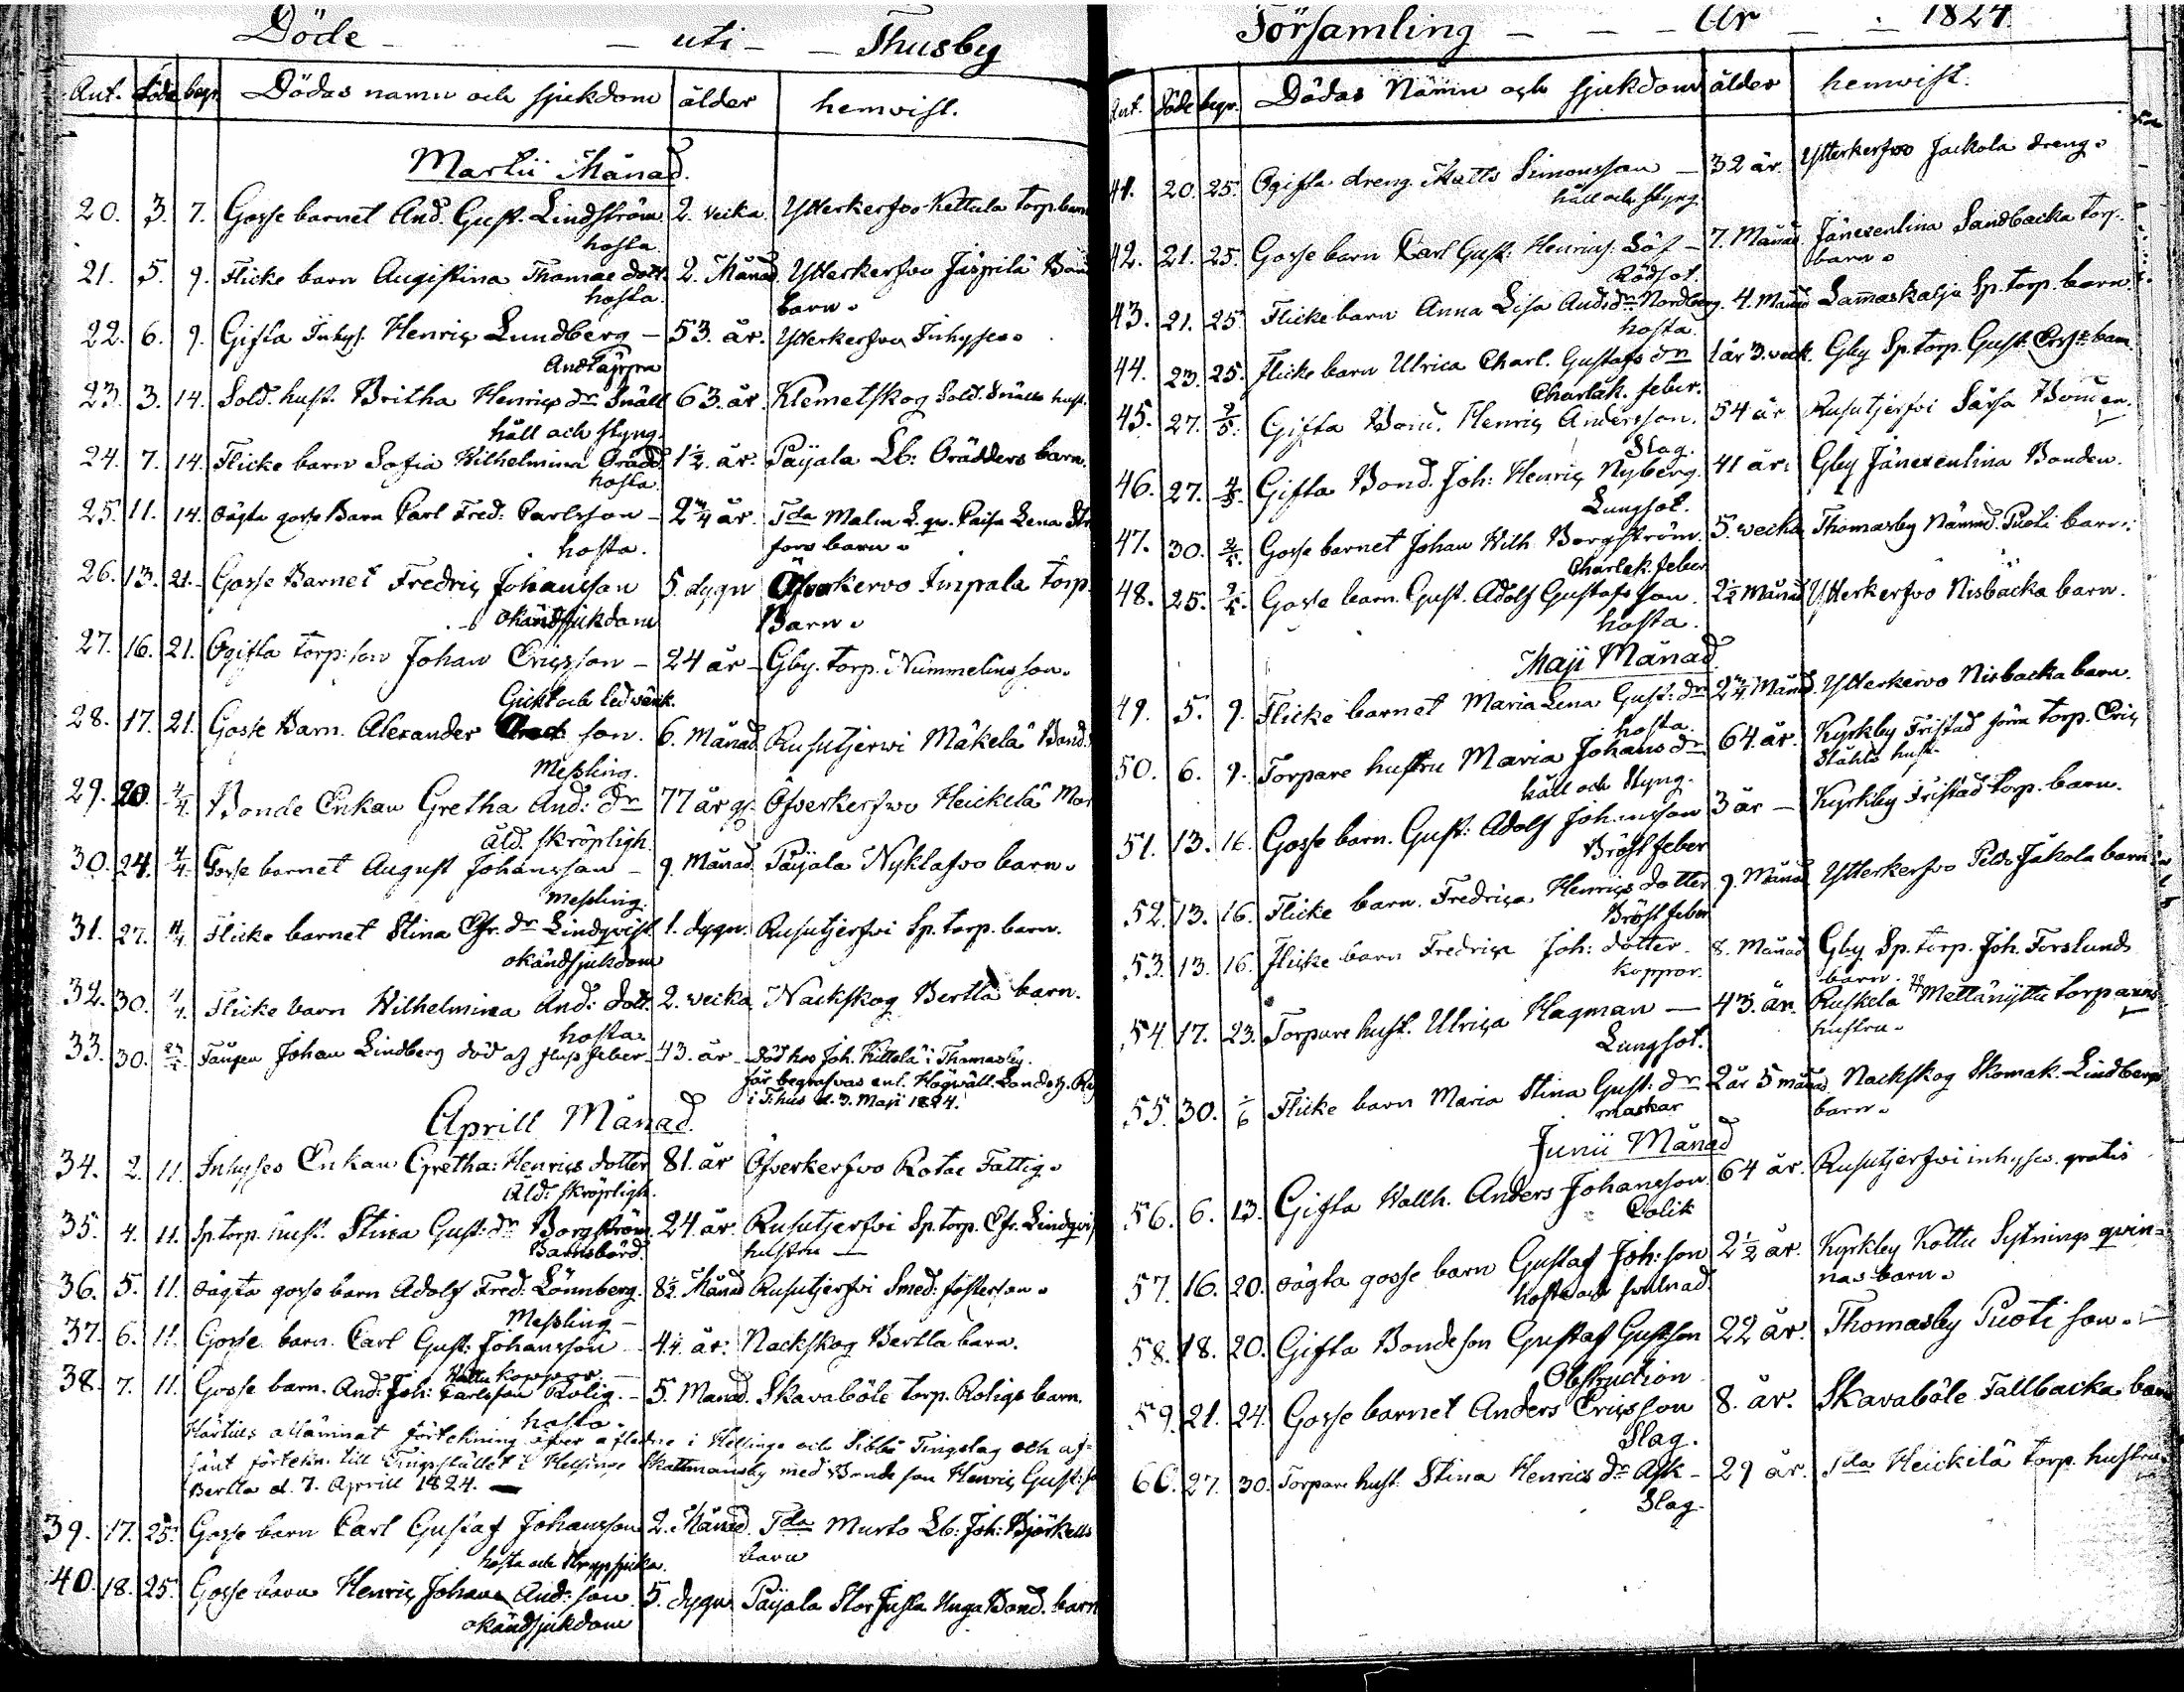 Döde uti Thusby
Ant. Döde begr. Dödas namn och sjukdom ålder hemvist.
Martii Månad.
20. 3. 7. Gosse barnet And. Gust. Lindström 2. veika. Ytterkerfvo Kettula torp. barn
hosta.
21. 5. 9. Flicke barn Augistina Thomae dott. 2. Månad. Ytterkerfvo Jäspilä Bond
hosta. barn.
22. 6. 9. Gifta Inhys. Henric Lundberg - 53. år. Ytterkerfvo Inhyses.
Andtäppa
23. 3. 14. Sold. hust. Britha Henrics dr Snäll 63. år. Klemetskog Sold. Snälls hust.
håll och styng.
24. 7. 14. Flicke barn Sofia Wilhelmina Grädd. 1 1/2. år. Päyala Lb: Grädders barn.
hosta.
25. 11. 14. oägta gosse Barn Carl Fred: Carlsson - 2 3/4 år. Tda Malm L. qv. Caisa Lena
hosta. fors barn.
26. 13. 21. Gosse Barnet Fredric Johansson 5. dygn Öfverkervo Impala torp.
okänd sjukdom Barn.
27. 16. 21. Ogifta torp: son Johan Ericsson - 24 år - Gby. torp. Nummelins son.
Gickt och ledvärk.
28. 17. 21. Gosse Barn. Alexander son. 6. Månad Rusutjerwi Mäkelä Bond.
Messling.
29. 20. 4/4. Bonde Enkan Gretha And: dr 77 år Öfverkerfwo Heickelä Mor
Åld. skröpligh.
30. 24. 4/4. Gosse barnet August Johansson - 9. Månad. Päyala Nyklasvo barn.
Messling.
31. 27. 4/4. Flicke barnet Stina Cfr. dr Lindqvist 1. dygn. Rusutjerfvi Sp. torp. barn.
okänd sjukdom
32. 30. 4/4. Flicke barn Wilhelmina And: dott. 2. veika Nackskog Bertla barn.
hosta.
33. 30. Johan Lindberg död af feber - 43. år - Död hos Joh. Kittelä i Thomasby.
får begrafvas enl. Högväll. Landsh.
i Thus d. 3. Maji 1824.
Aprill Månad.
34. 2. 11. Inhyses Enkan Gretha: Henrics dotter 81. år Öfverkerfwo Rotae Fattig.
Åld: skröpligh.
35. 4. 11. Sp. torp. hust. Stina Gust: dr Borgström. 24. år. Rusutjerfvi Sp. torp. Cfr. Lindqvist
Barnsbörd. hustru
36. 5. 11. oägta gosse barn Adolf Fred. Lönnberg. 8 1/2. Månad Rusutjerfvi Smed. fosterson.
Messling -
37. 6. 11. Gosse barn. Carl Gust: Johansson - 4 1/4. år. Nackskog Bertla barn.
koppor.
38. 7. 11. Gosse barn. And: Joh: Carlsson Rolig. - 5. Månad. Skavaböle torp. Roligs barn.
hosta.
Härtils aflämnat förtekning öfver aflidne i Helsinge och Sibbå Tingslag och af-
sänt förtekn. till Tingsstället i Helsinge Skattmansby med Bonde son Henric Gust: so
Bertla d. 7. Aprill 1824.
39. 17. 25. Gosse barn Carl Gustaf Johansson 2. Månad. Tda Murto Lb: Joh: Björkells
hosta och barn
40. 18. 25. Gosse barn Henric Johan And: son. 5. dygn Päyala Stor Jusla Unga Bond. barn
okänd sjukdom
Församling År 1824.
Ant. Döde begr. Dödas Namn och sjukdom ålder hemvist.
41. 20. 25. Ogifta dreng. Matts Simonsson - 32 år. Ytterkerfvo Jackola dreng.
håll och styng
42. 21. 25. Gosse barn Carl Gust: Henrics: Löf - 7. Månad. Jänexenlina Sandbacka torp.
Rödsot. barn.
43. 21. 25. Flicke barn Anna Lisa Ands dr Nordberg. 4. Månad Lammaskalja Sp. torp. barn.
hosta.
44. 23. 25. Flicke barn Ulrica Charl. Gustafs dr 1 år 3. veck. Gby Sp. torp. Gust. barn
Charlak. feber.
45. 27. 2/5. Gifta Bond. Henric Andersson. 54 år Rusutjerfvi Särsa Bonden.
Slag.
46. 27. Gifta Bond. Joh: Henric Nyberg. 41 år. Gby Jänexenlina Bonden.
Lungsot.
47. 30. 2/5. Gosse barnet Johan Wilh. Borgström. 5. vecka Thomasby Nämnd. Puoti barn.
Charlak. feber
48. 25. 2/5. Gosse barn. Gust. Adolf Gustafsson 2 1/2 Månad Ytterkerfvo Nisbacka barn.
hosta.
Maji Månad
49. 5. 9. Flicke barnet Maria Lena Gust: dr 2 3/4 Månad. Ytterkervo Nisbacka barn.
hosta.
50. 6. 9. Torpare hustru Maria Johans dr 64. år. Kyrkby Fristad förra torp. Eric
håll och styng. Ståhls hust.
51. 13. 16. Gosse barn. Gust: Adolf Johansson 3 år - Kyrkby Fristad torp. barn.
Bröst feber
52. 13. 16. Flicke barn. Fredrica Henrics dotter 9. Månad Ytterkerfvo Peldo Jakola barn
Bröst feber
53. 13. 16. Flicke barn Fredrica Joh: dotter. 8. Månad Gby Sp. torp. Joh. Forslunds
koppor. barn.
54. 17. 23. Torpare hust. Ulrica Hagman — 43. år. Ruskela Mettänyttu torparens
Lungsot. hustru.
55. 30. 1/6 Flicke barn Maria Stina Gust: dr 2 år 5 månad Nackskog Skomak. Lindbergs
maskar barn.
Junii Månad
56. 6. 13. Gifta Wallh. Anders Johansson 64 år. Rusutjerfvi inhyses. gratis
Colik
57. 16. 20. oägta gosse barn Gustaf Joh: son 2 1/2 år. Kyrkby Kottu Sytnings qvin-
hosta och svulnad. nas barn.
58. 18. 20. Gifta Bondeson Gustaf Gustson 22 år. Thomasby Puoti son.
Obstruction
59. 21. 24. Gosse barnet Anders Ericsson 8. år. Skavaböle Tallbacka barn
Slag.
60. 27. 30. Torpare hust. Stina Henrics dr Ask - 29 år. Tda Heickilä torp. hustru.
Slag.